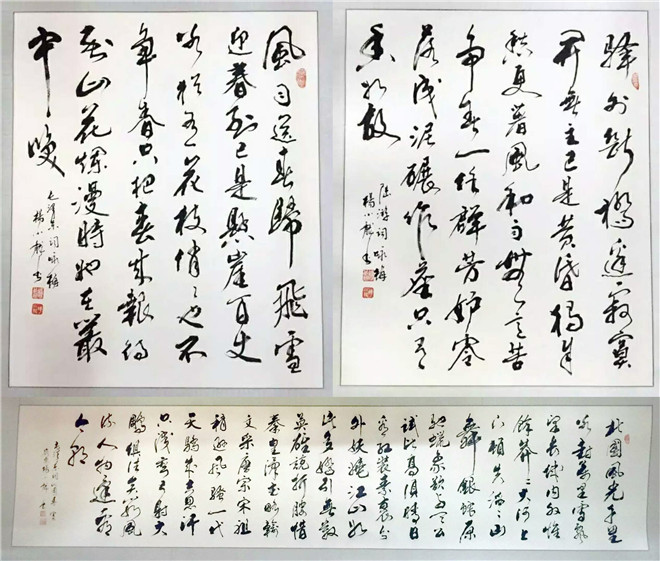 風雨送春歸飛雪
迎春到已是懸崖百丈
冰猶有一花枝俏〻也不
爭春只把春來報待
到山花爛漫時她在叢
中笑
毛澤東词咏梅
楊小书
驛外斷橋邊寂寞
開無主已是黄昏獨自
愁更著風和雨無意苦
争春一任群芳妒零
落成泥碾作塵只有
香如故
陸游词咏梅
楊小书
北國風光千里
冰封萬里雪飄
望長城内外惟
餘莽〻大河上
下頓失滔〻山
舞銀蛇原
馳蠟象欲與天公
試比高須晴日
看紅裝素裹分
外妖嬈江山如
此多嬌引無數
英雄競折腰惜
秦皇漢武略輸
文采唐宗宋祖
稍遜風騷一代
天驕成吉思汗
只識彎弓射大
鵰俱往矣數風
流人物還看
今朝
毛澤東词沁園春雪